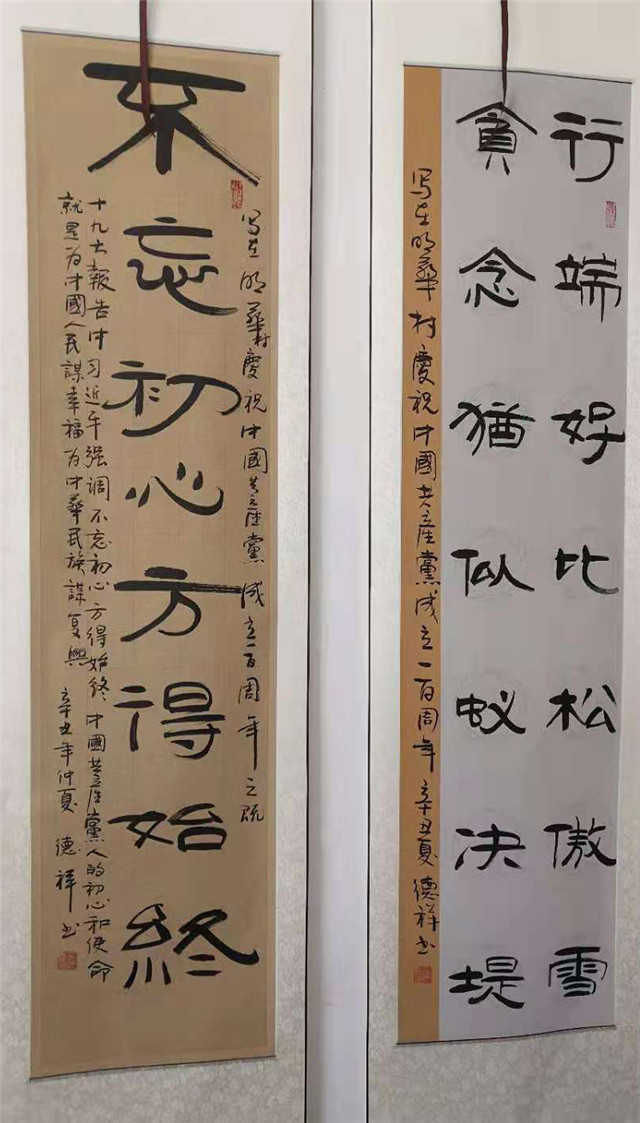 行端好比松傲雪
貪念猶似蚁决堤
写在明華村慶祝中國共產黨成立一百周年 辛丑夏 德祥书
写在明華村慶祝中國共產黨成立一百周年之际
不忘初心方得始終
十九大報告中习近平强调不忘初心方得始终中國共產黨人的初心和使命
就是为中國人民謀幸福为中華民族謀复興 辛丑年仲夏 德祥书